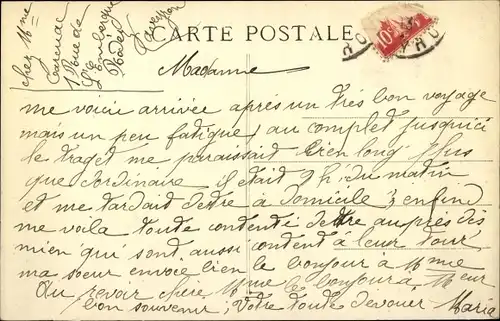 CARTE POSTALE
chez Mme
1 Rue de
Rodez
Aveyron
10
Madame
me voici arrivée après un très bon voyage
mais un peu fatigué, au complet jusqu'ici
le traget me paraissait bien long plus
que d'ordinaire il était 9h du matin
et me tardait detre a domicile, enfin
me voila toute contente detre auprès des
mien qui sont aussi content à leur tour
ma soeur envoce bien le bonjour à Mme
Au revoir chère Mme les bonjours a Meur
bon souvenir ; Votre toute devouer Marie